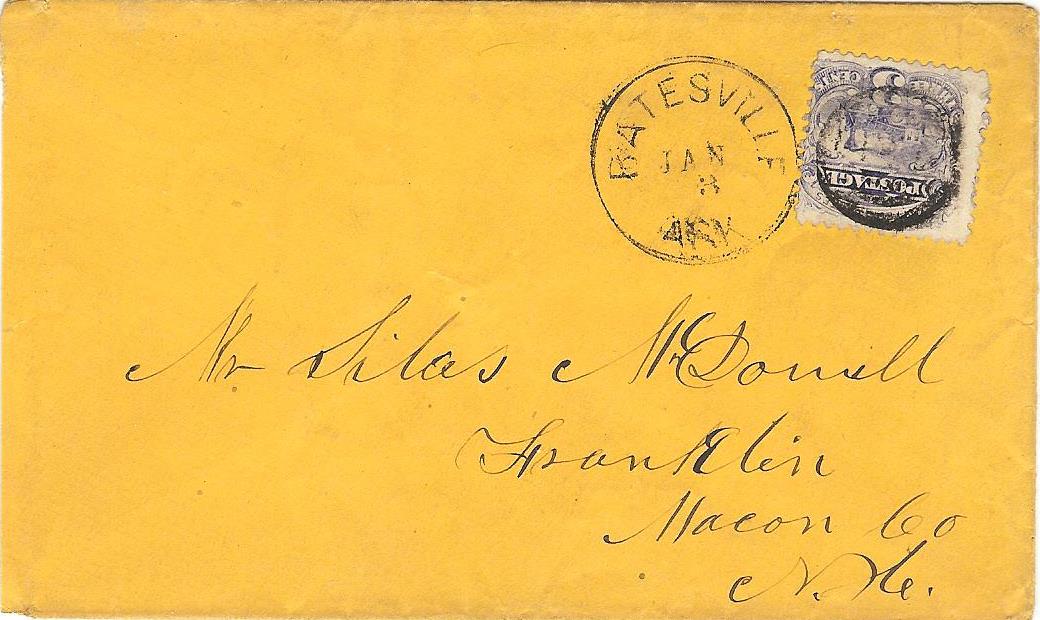 BATESVILLE
JAN
8
ARK
POSTAGE
Mr Silas McDowell
Franklin
Macon Co
N.C.